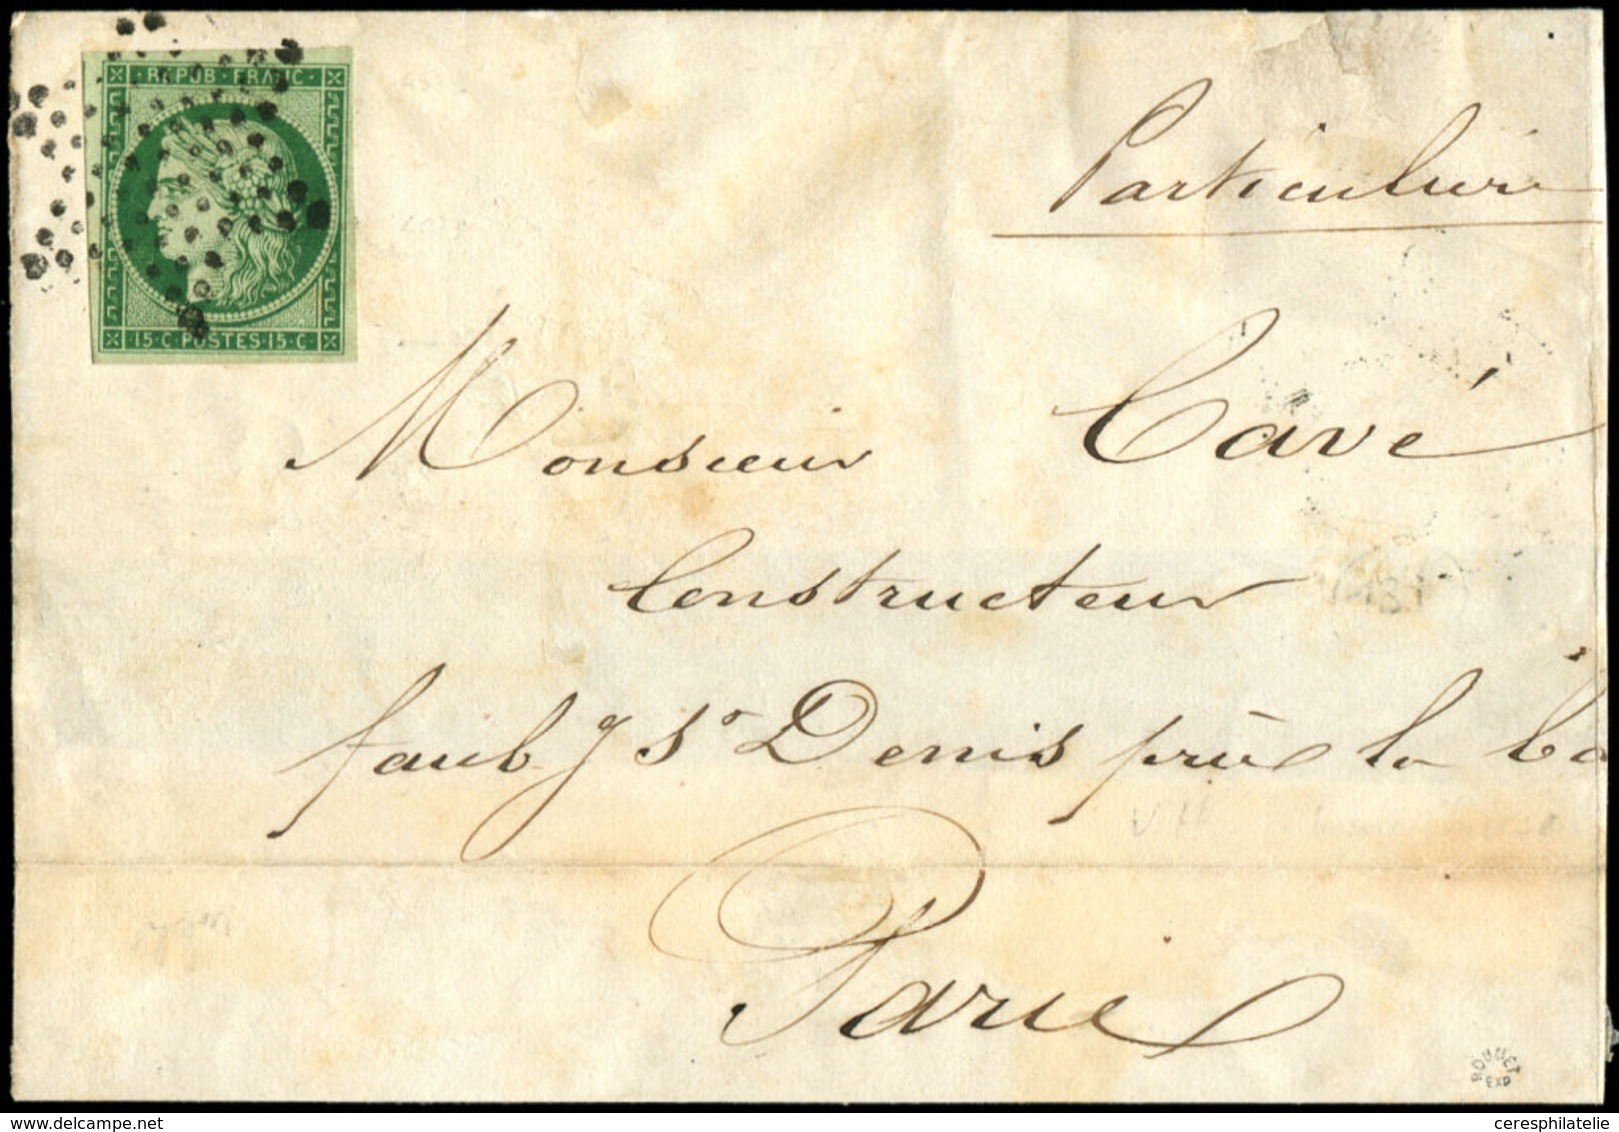 REPUB · FRANC ·
15 · C · POSTES · 15 · C ·
Particulière
Monsieur Cavé
Constructeur
faubg St Denis près la ba
Paris
ROUMET
EXP
ceresphilatelie